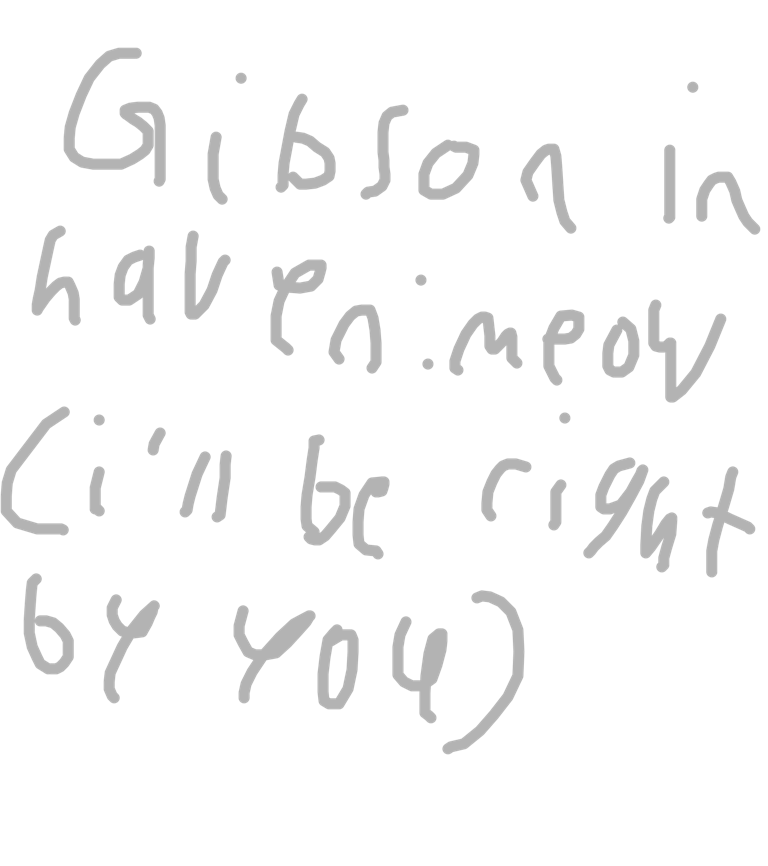 Gibson in
haven:meow
(i'll be right
by you)